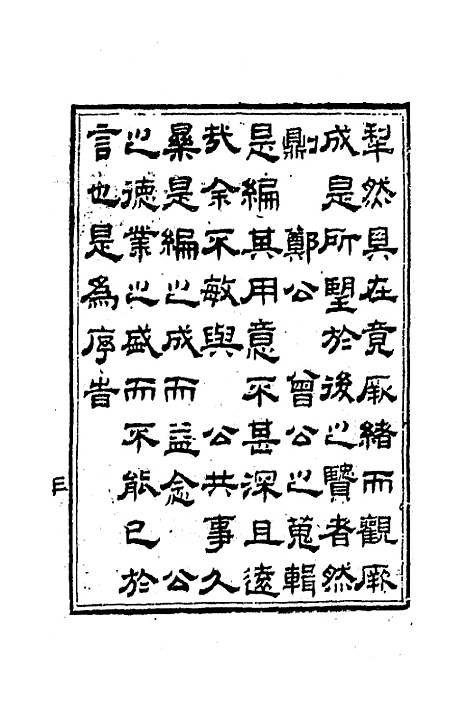 犁然具在竟厥緒而觀厥
成是所朢於後之賢者然
則　鄭公　曾公之蒐輯
是編其用意不甚深且遠
哉余不敏與　公共事久
是編之成而益念　公
之德業之盛而不能已於
言也是為序旹
三